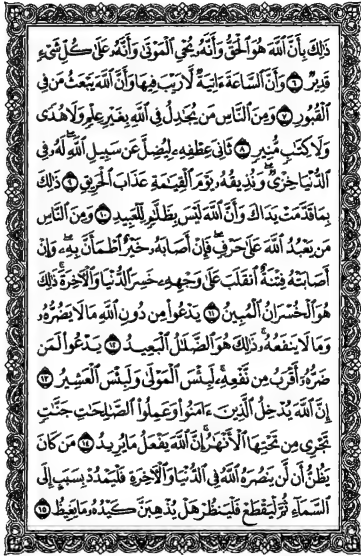 ذَٰلِكَ بِأَنَّ ٱللَّهَ هُوَ ٱلۡحَقُّ وَأَنَّهُۥ يُحۡيِ ٱلۡمَوۡتَىٰ وَأَنَّهُۥ عَلَىٰ كُلِّ شَيۡءٖ
قَدِيرٞ ٦ وَأَنَّ ٱلسَّاعَةَ ءَاتِيَةٞ لَّا رَيۡبَ فِيهَا وَأَنَّ ٱللَّهَ يَبۡعَثُ مَن فِي
ٱلۡقُبُورِ ٧ وَمِنَ ٱلنَّاسِ مَن يُجَٰدِلُ فِي ٱللَّهِ بِغَيۡرِ عِلۡمٖ وَلَا هُدٗى
وَلَا كِتَٰبٖ مُّنِيرٖ ٨ ثَانِيَ عِطۡفِهِۦ لِيُضِلَّ عَن سَبِيلِ ٱللَّهِۖ لَهُۥ فِي
ٱلدُّنۡيَا خِزۡيٞۖ وَنُذِيقُهُۥ يَوۡمَ ٱلۡقِيَٰمَةِ عَذَابَ ٱلۡحَرِيقِ ٩ ذَٰلِكَ
بِمَا قَدَّمَتۡ يَدَاكَ وَأَنَّ ٱللَّهَ لَيۡسَ بِظَلَّٰمٖ لِّلۡعَبِيدِ ١٠ وَمِنَ ٱلنَّاسِ
مَن يَعۡبُدُ ٱللَّهَ عَلَىٰ حَرۡفٖۖ فَإِنۡ أَصَابَهُۥ خَيۡرٌ ٱطۡمَأَنَّ بِهِۦۖ وَإِنۡ
أَصَابَتۡهُ فِتۡنَةٌ ٱنقَلَبَ عَلَىٰ وَجۡهِهِۦ خَسِرَ ٱلدُّنۡيَا وَٱلۡأٓخِرَةَۚ ذَٰلِكَ
هُوَ ٱلۡخُسۡرَانُ ٱلۡمُبِينُ ١١ يَدۡعُواْ مِن دُونِ ٱللَّهِ مَا لَا يَضُرُّهُۥ
وَمَا لَا يَنفَعُهُۥۚ ذَٰلِكَ هُوَ ٱلضَّلَٰلُ ٱلۡبَعِيدُ ١٢ يَدۡعُواْ لَمَن
ضَرُّهُۥٓ أَقۡرَبُ مِن نَّفۡعِهِۦۚ لَبِئۡسَ ٱلۡمَوۡلَىٰ وَلَبِئۡسَ ٱلۡعَشِيرُ ١٣
إِنَّ ٱللَّهَ يُدۡخِلُ ٱلَّذِينَ ءَامَنُواْ وَعَمِلُواْ ٱلصَّٰلِحَٰتِ جَنَّٰتٖ
تَجۡرِي مِن تَحۡتِهَا ٱلۡأَنۡهَٰرُۚ إِنَّ ٱللَّهَ يَفۡعَلُ مَا يُرِيدُ ١٤ مَن كَانَ
يَظُنُّ أَن لَّن يَنصُرَهُ ٱللَّهُ فِي ٱلدُّنۡيَا وَٱلۡأٓخِرَةِ فَلۡيَمۡدُدۡ بِسَبَبٍ إِلَى
ٱلسَّمَآءِ ثُمَّ لۡيَقۡطَعۡ فَلۡيَنظُرۡ هَلۡ يُذۡهِبَنَّ كَيۡدُهُۥ مَا يَغِيظُ ١٥